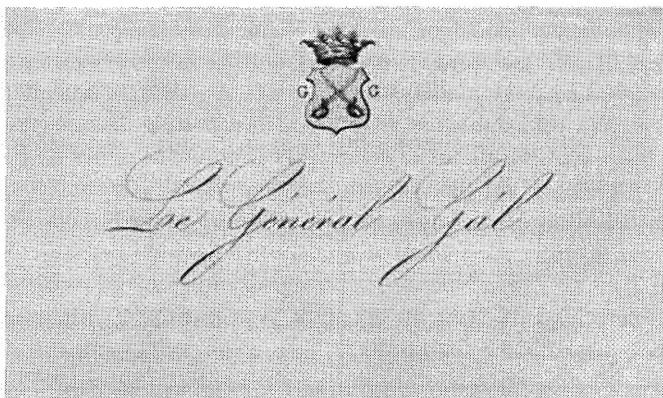 G G
Le Général Gál